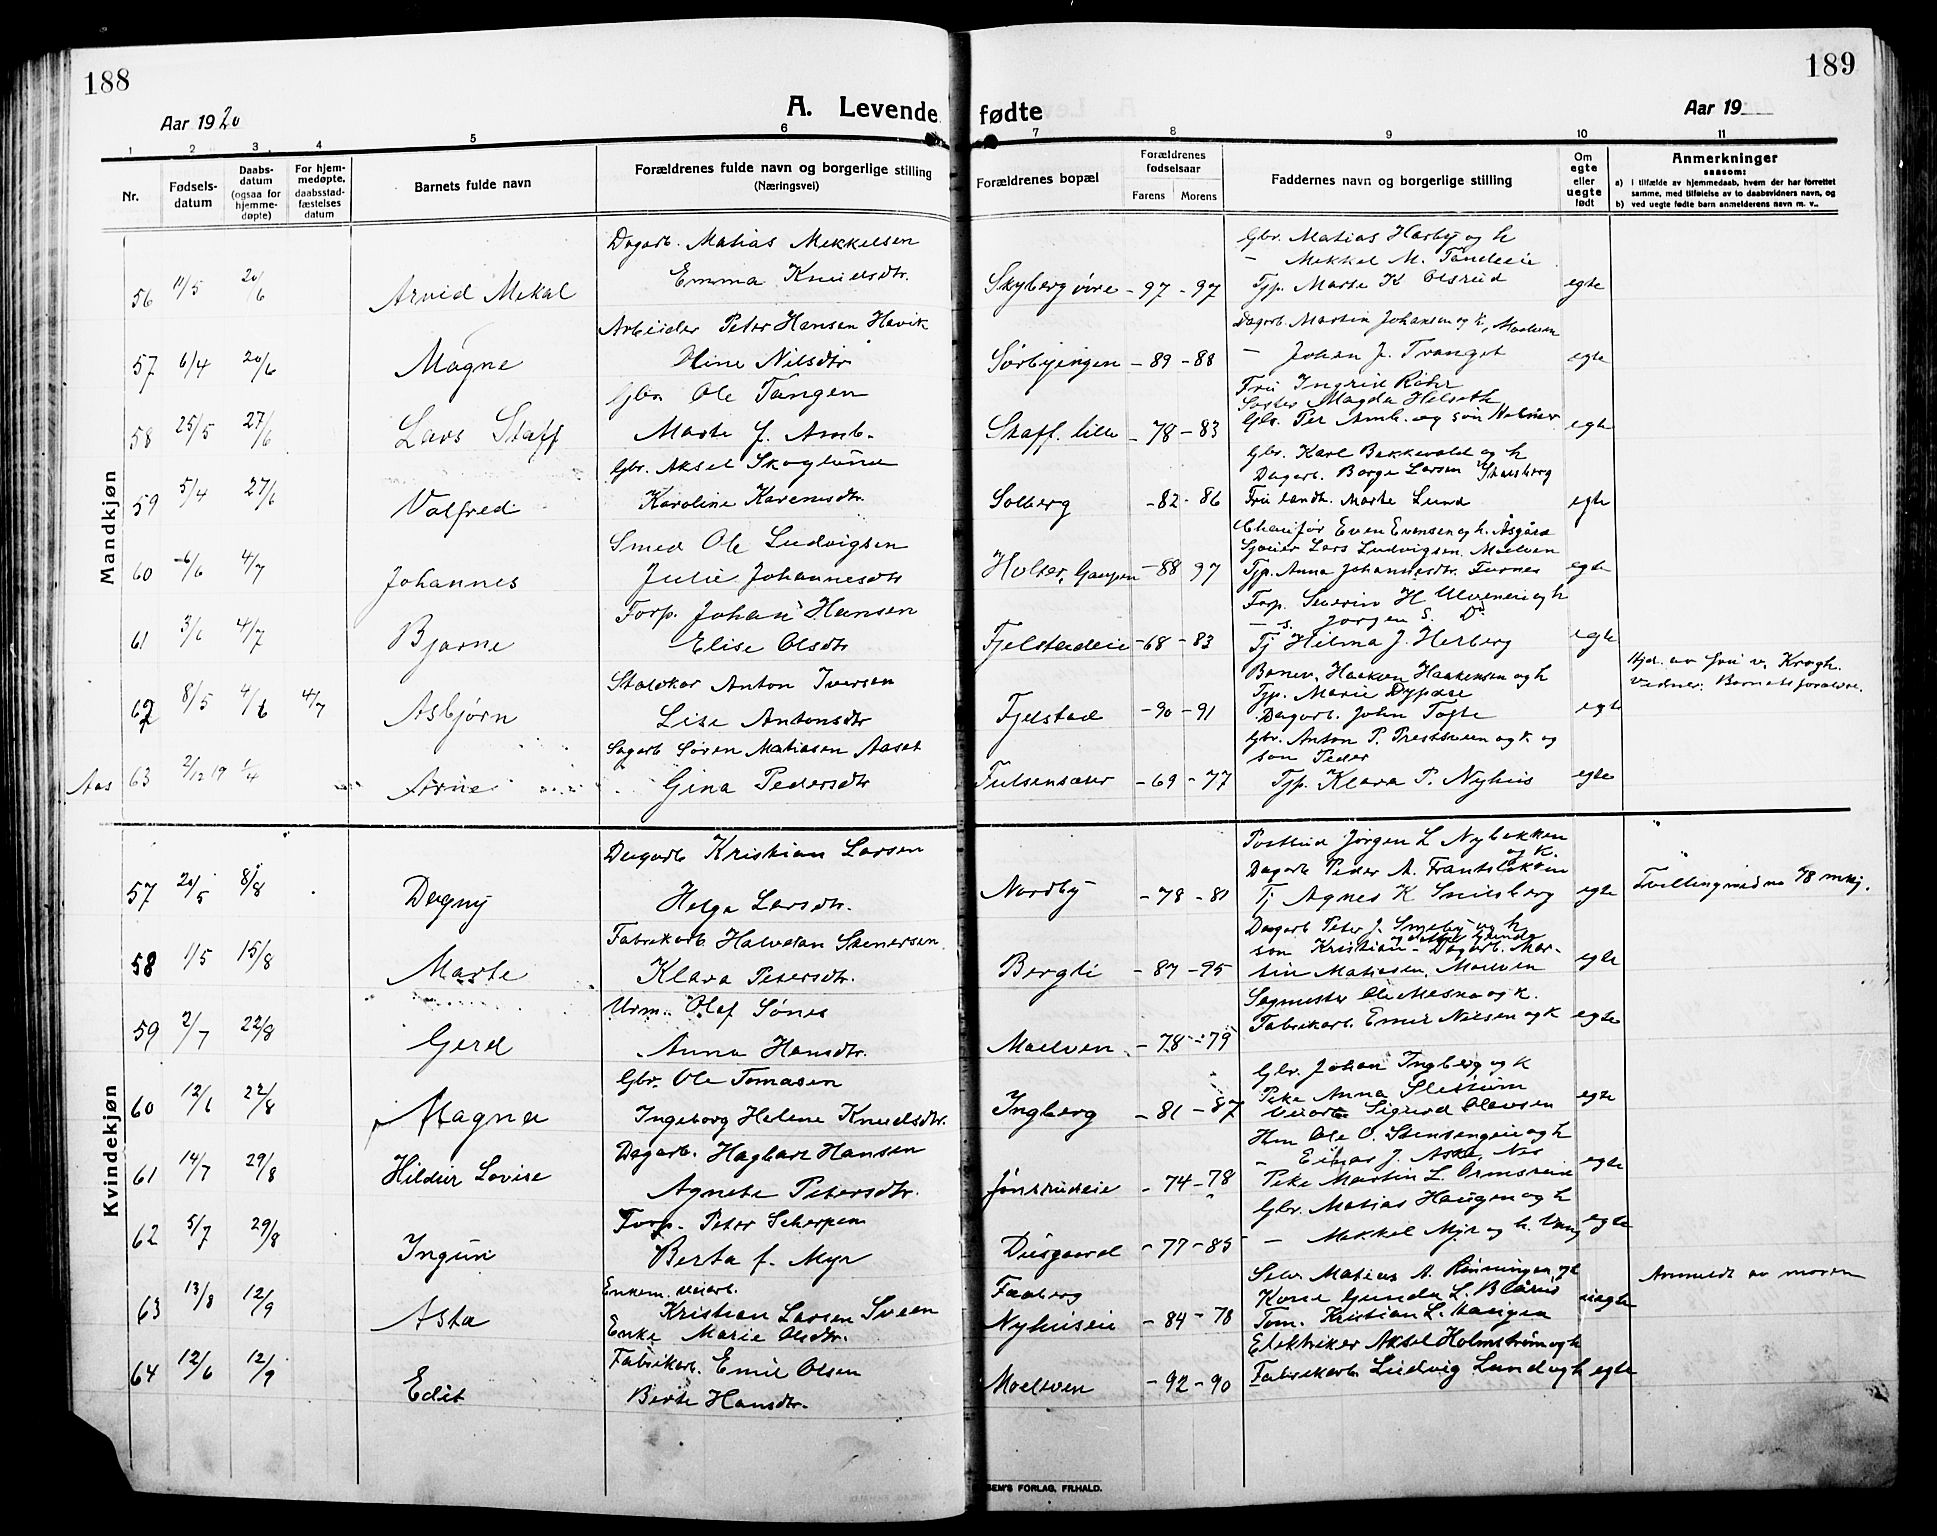 188
189
A. Levende fødte
Aar 1920
Aar 19
1 2 3 4 5 6 7 8 9 10 11
Nr.
Fødsels-
datum
Daabs-
datum
(ogsaa for
hjemme-
døpte)
For hjem-
medøpte,
daabsstad-
fæstelses
datum
Barnets fulde navn
Forældrenes fulde navn og borgerlige stilling
(Næringsvei)
Forældrenes bopæl
Forældrenes
fødselsaar
Farens Morens
Faddernes navn og borgerlige stilling
Om
egte
eller
uegte
født
Anmerkninger
saasom:
a) I tilfælde av hjemmedaab, hvem der har forrettet
samme, med tilføielse av to daabsvidners navn, og
b) ved uegte fødte barn anmelderens navn m. v..
Mandkjøn
Dagarb. Matias Mekkelsen Gbr. Matias Harby og h
Emma Knudsdtr. - Mekkel M. Tandeeie
56 11/5 20/6 Arvid Mekal Skyberg øvre - 97 - 97 Tjp. Marte K Olsrud egte
Arbeider Peter Hansen Havik Dagarb. Martin Johansen og k, Moelven
57 6/4 20/6 Magne Oline Nilsdtr Sørbyengen - 89 - 88 - Johan J. Tranget egte
Gbr Ole Tangen Fru Ingrid Røhr
Søster Magda Helseth
58 25/5 27/6 Lars Staff Marte f. Amb. Staff. lille - 78 - 83 Gbr. Per Amb. og søn Helmer egte
Gbr. Aksel Skoglund Gbr. Karl Bakkevold og h
Dagarb. Borge Larsen Skarsberg
59 5/4 27/6 Valfred Karoline Karenusdtr. Solberg - 82 - 86 Fru landh. Marte Lund egte
Smed Ole Ludvigsen Chaufør Even Evensen og h. Åsgård
Sjauer Lars Ludvigsen. Moelven
60 6/6 4/7 Johannes Julie Johannesdtr Holter, Gaupen - 88 97 Tjp. Anna Johannesdtr. Furnes egte
Forp. Johan Hansen Forp. Severin H Ulveneie og h
- s. Jørgen S. D
61 3/6 4/7 Bjarne Elise Olsdtr Fjelstadeie - 68 - 83 Tj Hilma J. Herberg egte
Staldkar Anton Iversen Banev. Haakon Haakensen og h
Tjp. Marie Dypdee Hjd. av fru v. Krogh.
Vidner: Barnets foreldre.
62 8/5 4/6 4/7 Asbjørn Lise Antonsdtr Fjelstad - 90 - 91 Dagarb. John Tofte egte
Sagarb Søren Matiasen Aaset Gbr. Anton P. Prestkvern og k. og
søn Peder
Aas 63 2/12 19 1/4 Arne Gina Pedersdtr Fulsensæter - 69 - 77 Tjp. Klara P. Nyhus egte
Kvindekjøn
Dagarb Kristian Larsen Postbud Jørgen L Nybakken
og K.
Dagarb Peder A. Frantsløkken
57 20/5 8/8 Dagny Helga Larsdtr. Nordby - 78 - 81 Tj Agnes K Snilsberg egte Tvillingmed no 78 mkj.
Fabrikarb Halvdan Stenersen. Dagarb Peter J. Smeby og h
søn Kristian - Dagarb. Mar-
58 1/5 15/8 Marte Klara Petersdtr. Bergli - 87 - 95 tin Matiasen, Moelven egte
Urm. Olaf Sønes Sagmester Ole Mesna og k.
59 2/7 22/8 Gerd Anna Hansdtr. Moelven - 78 - 79 Fabrikarb. Emil Nilsen og k egte
Gbr. Ole Tomasen Gbr. Johan Ingberg og k
Pike Anna Slettum
60 12/6 22/8 Magna Ingeborg Helene Knudsdtr. Ingberg - 81 - 87 Veiarb Sigurd Olavsen egte
Dagarb. Hagbart Hansen Hm Ole O. Stensengeie og h
- Einar J. Aske. Nes
61 14/7 29/8 Hildur Lovise Agnete Petersdtr. Jønsrudeie - 74 - 78 Pike Martin L. Ormseeie egte
Forp. Peter Scherpen Gbr. Matias Haugen og h
62 5/7 29/8 Ingun Berta f. Myr Dusgaard - 77 - 85 - Mekkel Myr og h. Vang egte
Enkem. veiarb. Faaberg Selv. Matias A. Rønningen og h
Kristian Larsen Sveen Kone Gunda L. Blårud Anmeldt av moren
63 13/8 12/9 Asta Enke Marie Olsdtr. Nyhuseie - 84 - 78 Tom. Kristian L. Haugen uegte
Fabrikarb. Emil Olsen Elektriker Aksel Holmstrøm og h
64 12/6 12/9 Edit Berte Hansdtr. Moelven - 92 - 90 Fabrikarb Ludvig Lund og h egte
SEM'S FORLAG, FR.HALD.